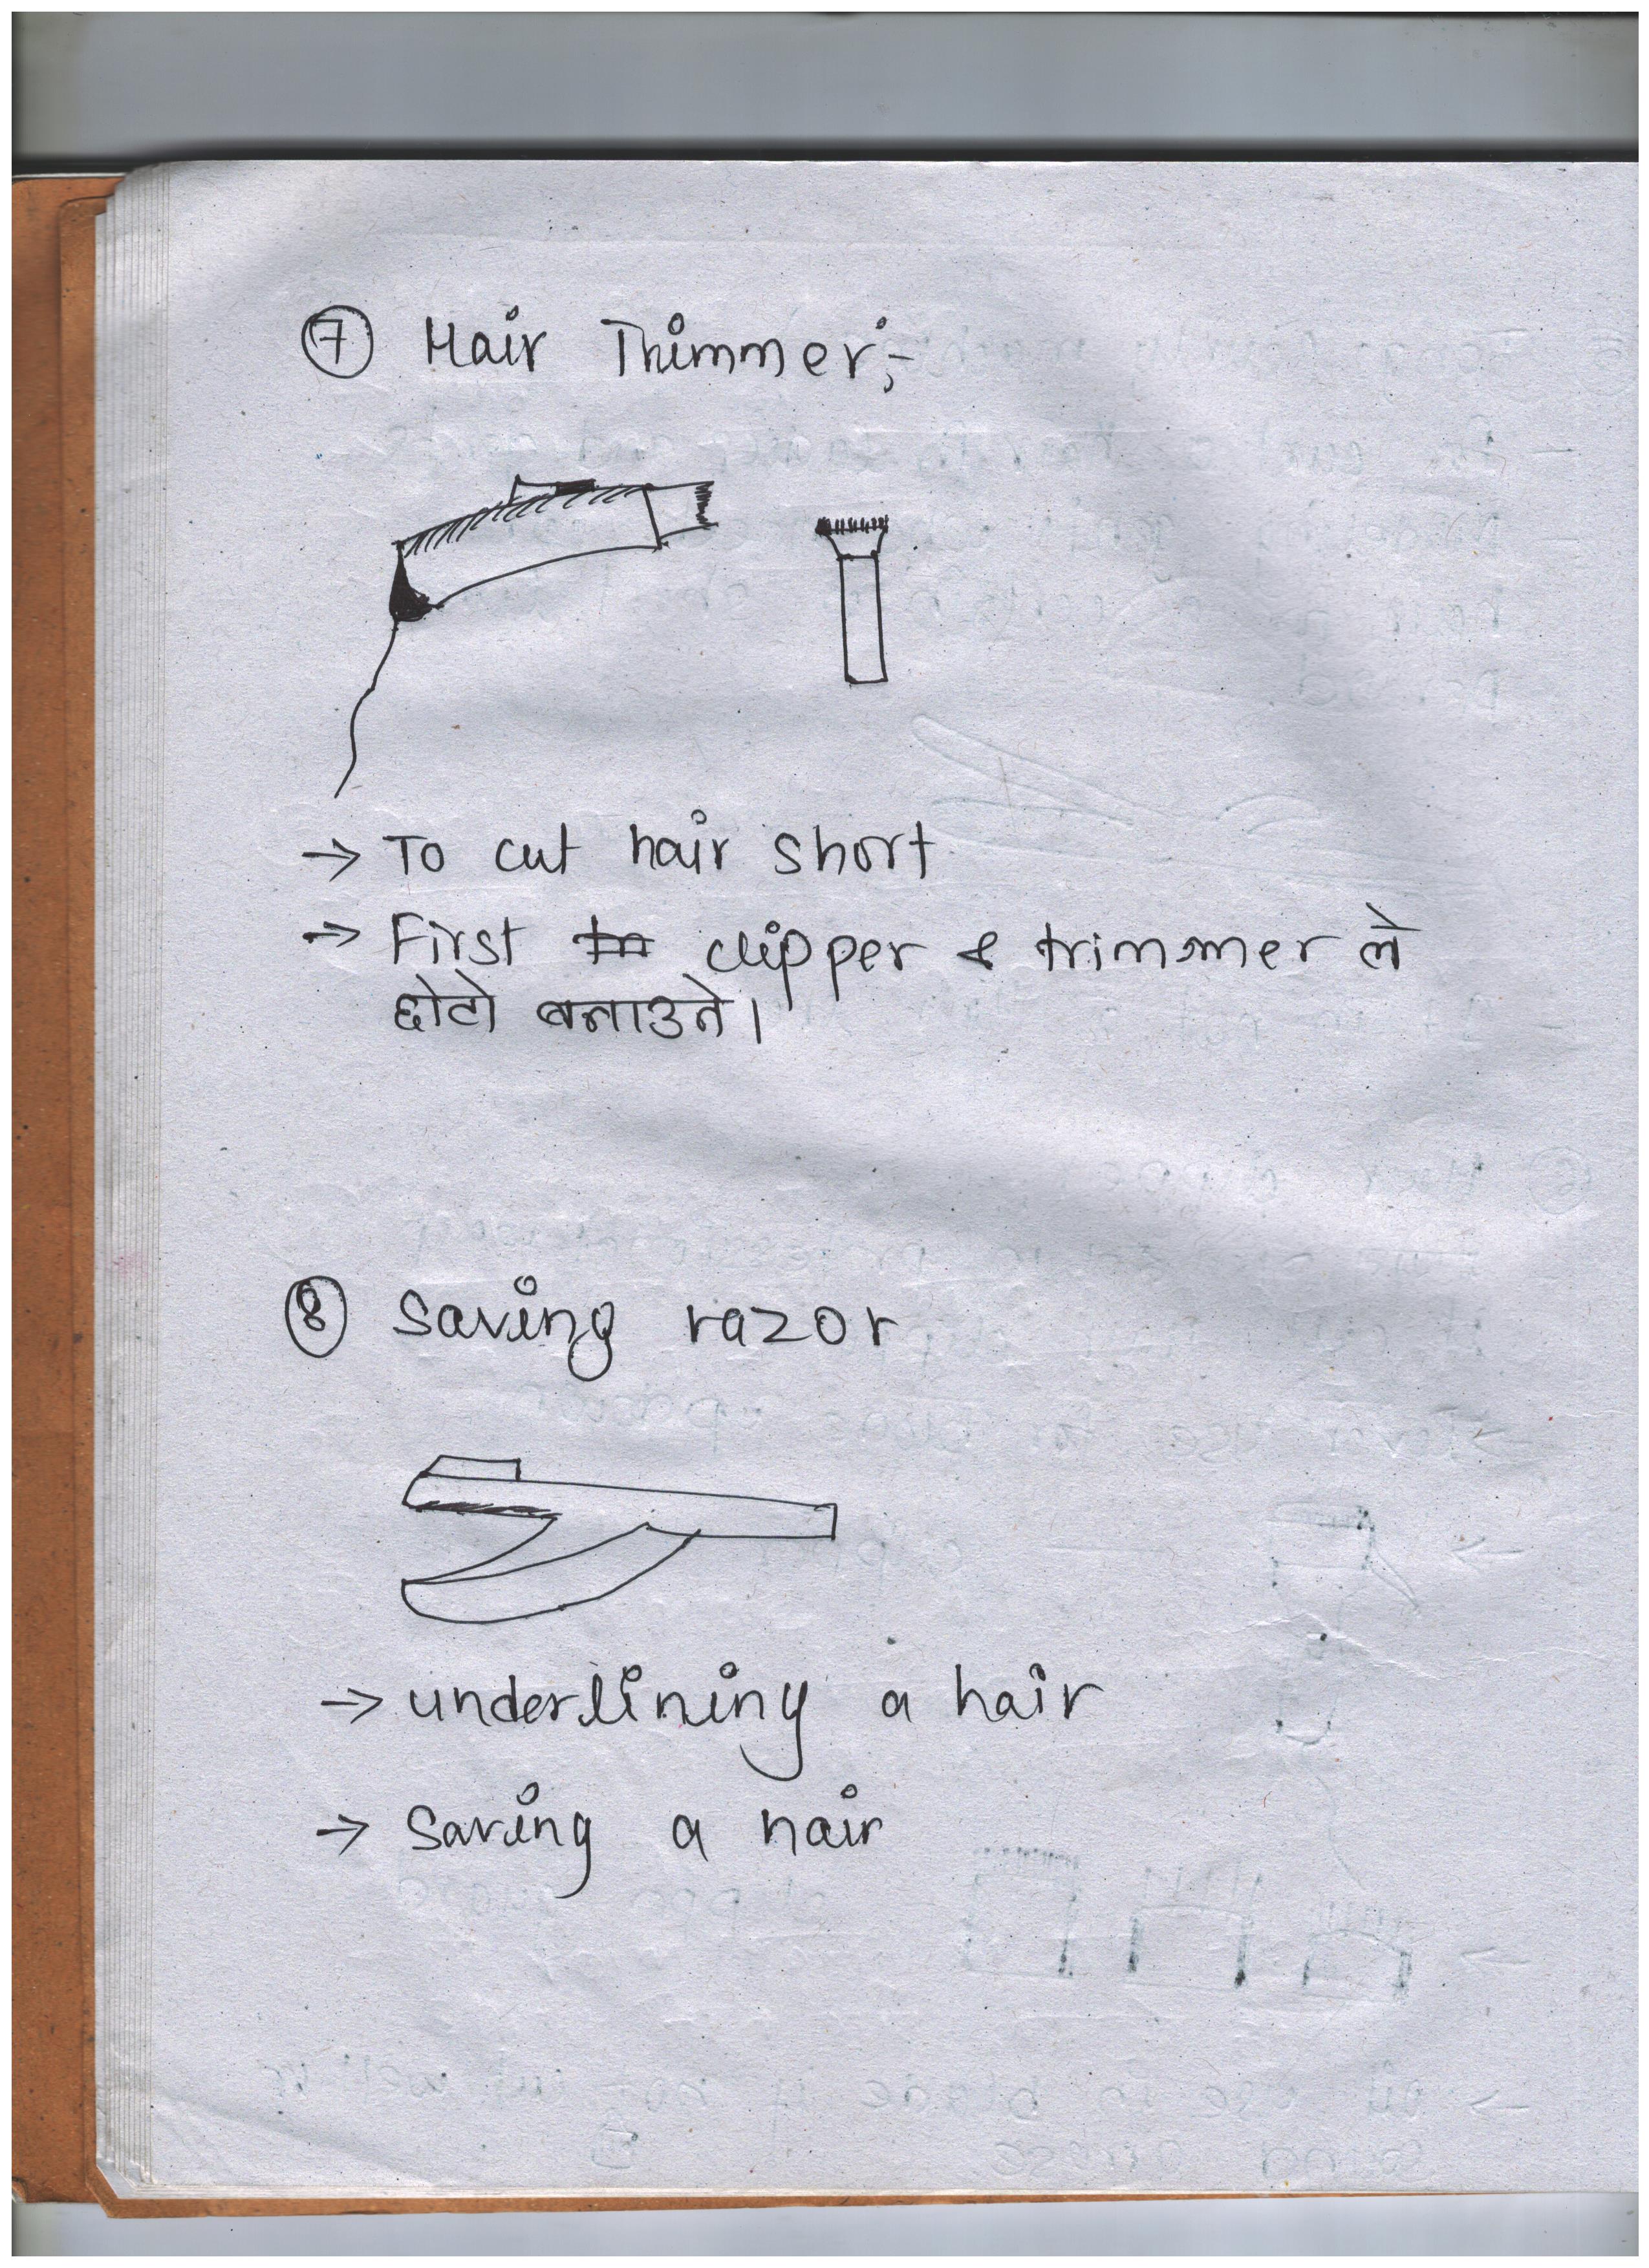 ⑦ Hair Trimmer;-
→ To cut hair short
→ First clipper & trimmer ले
छोटो बनाउने।
⑧ Saving razor
→ underlining a hair
→ Saving a hair